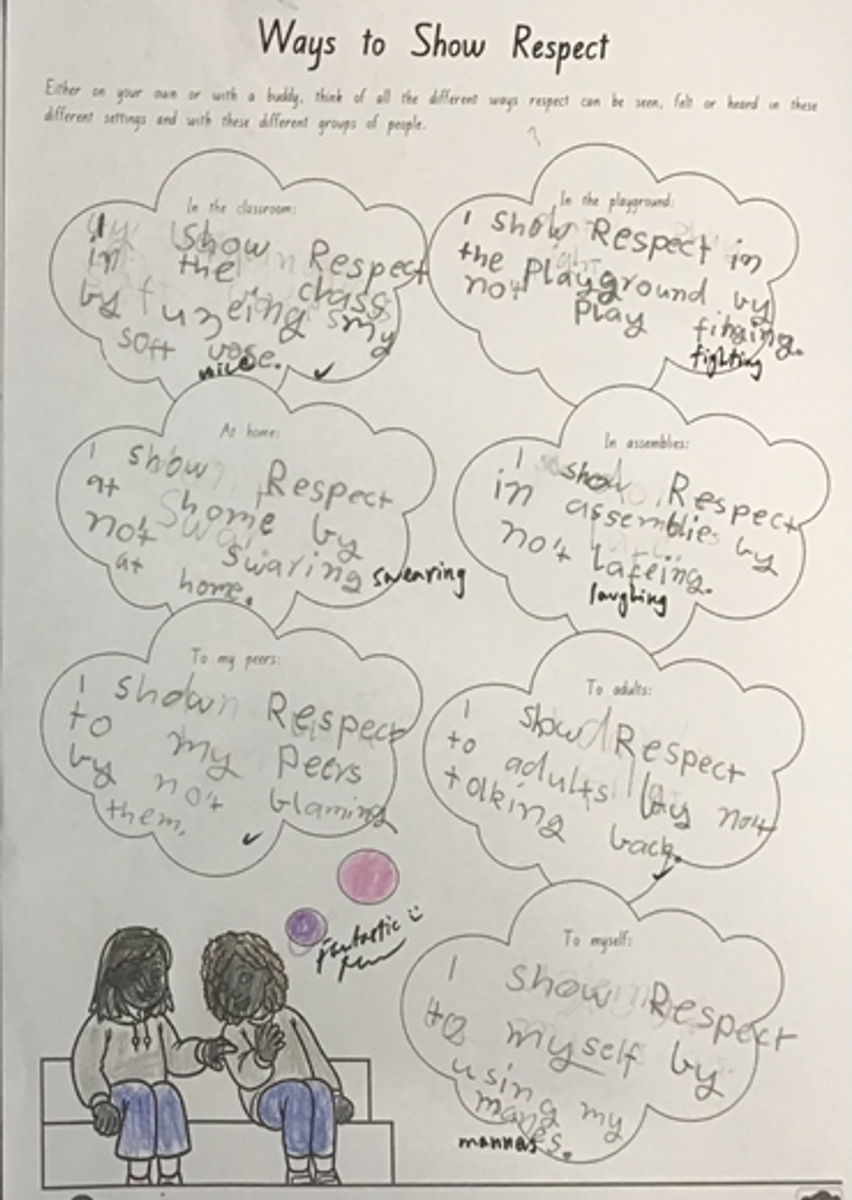 Ways to Show Respect
Either on your own or with a buddy, think of all the different ways respect can be seen, felt or heard in these
different settings and with these different groups of people.
In the classroom:
I Show Respect
in the class
by my
soft vose.
✓
In the playground:
I show Respect in
the Playground by
not Play
fighting
At home:
I show Respect
at home by
not swaring swearing
at home.
In assemblies:
I show Respect
in assemblies by
no't lafeing.
laughing
To my peers:
I show Respect
to my Peers
by no't blaming
them.
✓
To adults:
I show Respect
to adults by no't
talking back.
✓
fantastic
To myself:
I show Respect
to myself by
using my
manners